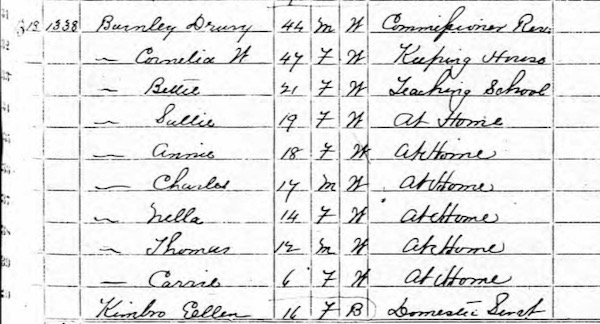 1338 Burnley Drury 44 M W Commissioner Rev.
— Cornelia W 47 F W Keeping House
— Bettie 21 F W Teaching School
— Sallie 19 F W At Home
— Annie 18 F W At Home
— Charles 17 M W At Home
— Nella 14 F W At Home
— Thomas 12 M W At Home
— Carrie 6 F W At Home
Kimbro Eellen 16 F B Domestic Servt